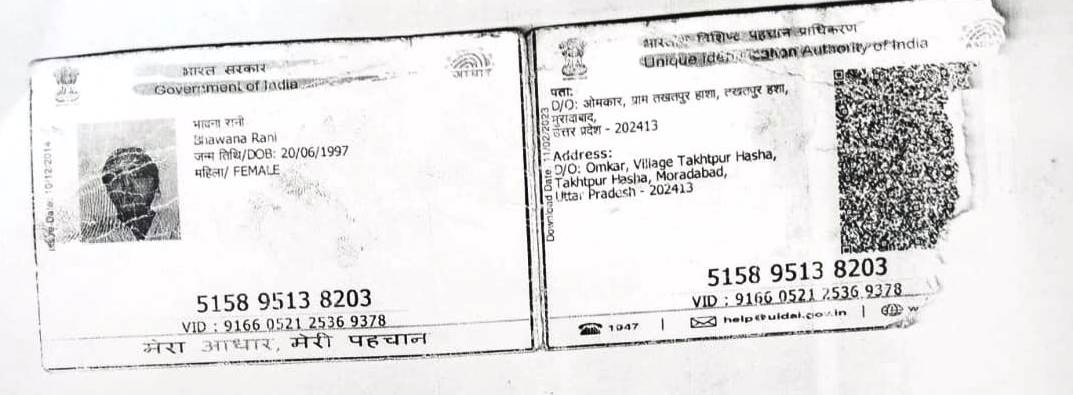 भारत सरकार
Government of India
आधार
Issue Date: 10/12/2014
भावना रानी
Bhawana Rani
जन्म तिथि/DOB: 20/06/1997
महिला/ FEMALE
5158 9513 8203
VID : 9166 0521 2536 9378
मेरा आधार, मेरी पहचान
विशिष्ट पहचान प्राधिकरण
Unique Authority of India
Download Date: 11/02/2023
पता:
D/O: ओमकार, ग्राम तखतपुर हाशा, तखतपुर हशा,
मुरादाबाद,
उत्तर प्रदेश - 202413
Address:
D/O: Omkar, Village Takhtpur Hasha,
Takhtpur Hasha, Moradabad,
Uttar Pradesh - 202413
5158 9513 8203
VID : 9166 0521 2536 9378
1947 | help@uidai.gov.in | w